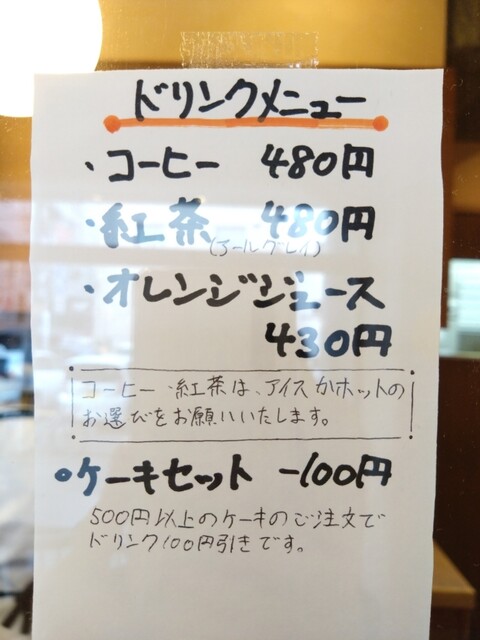 ドリンクメニュー
・コーヒー 480円
・紅茶 480円
(アールグレイ)
・オレンジジュース
430円
コーヒー・紅茶は、アイスかホットの
お選びをお願いいたします。
○ケーキセット -100円
500円以上のケーキのご注文で
ドリンク100円引きです。